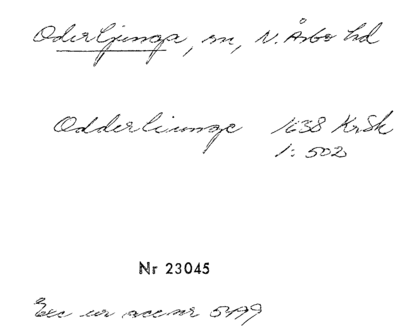 Oderljunga, sn, N. Åsbo hd
Odderliunge 1638 KrSk
1: 502
Nr 23045
Exc ur accnr 5499